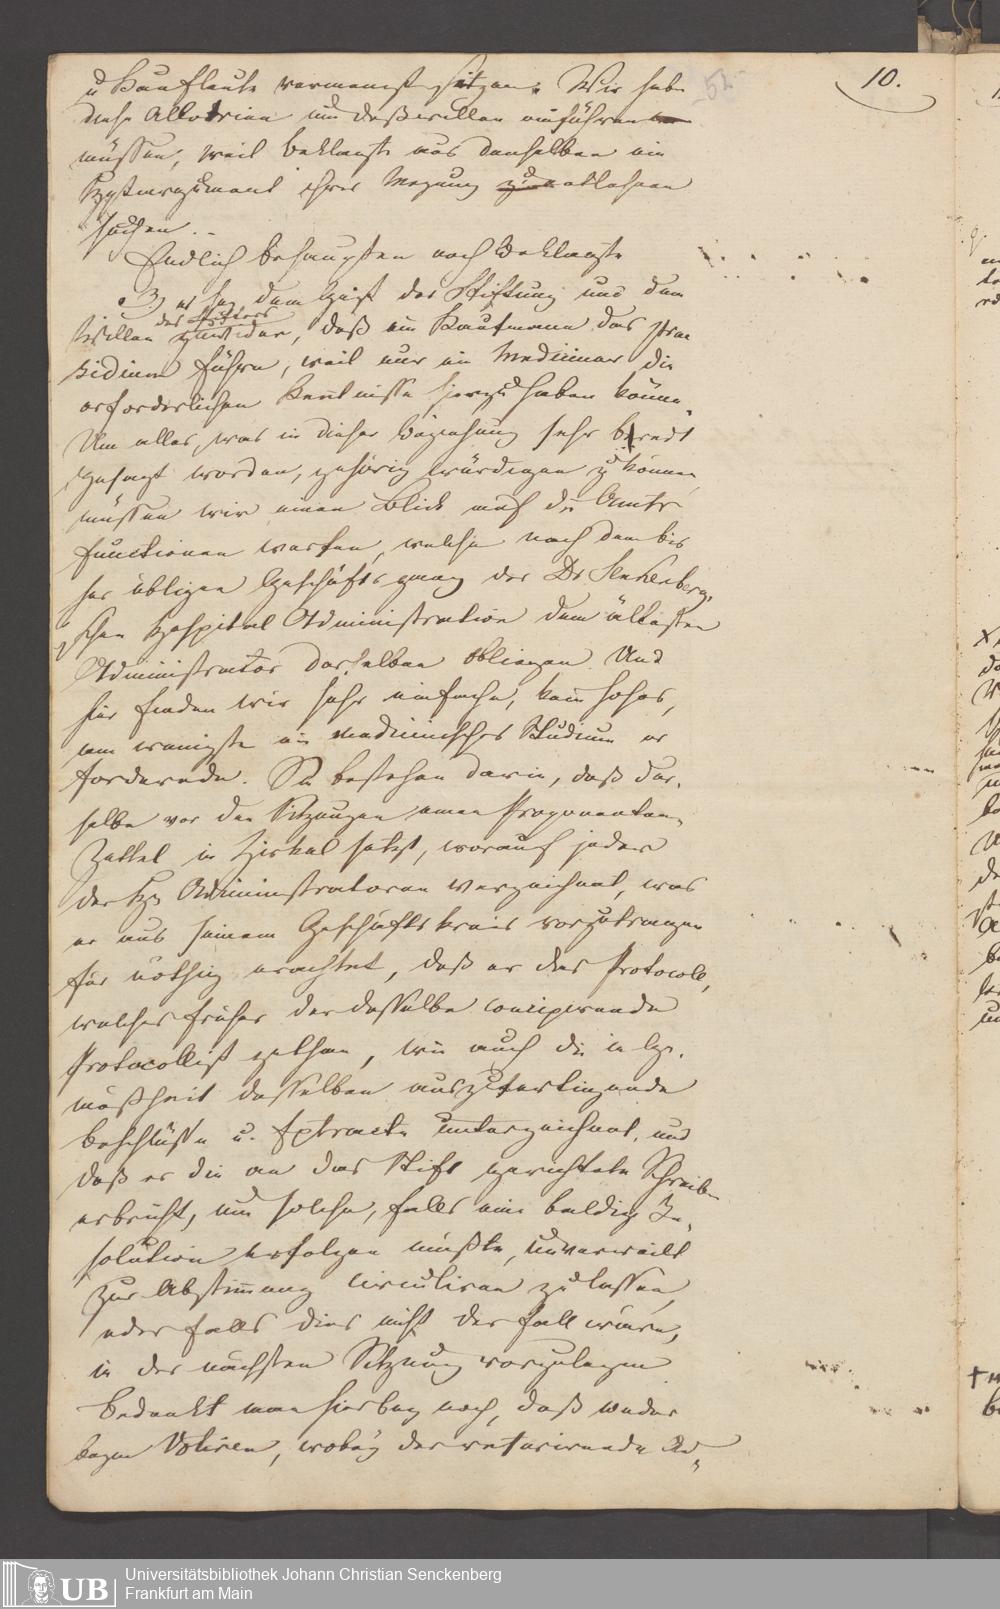 52
10.
u Kaufleute vermengt sitzen. Wir habe
diese Allotrien um deßwillen einführen
müssen, weil Beklagte aus denselben ein
Hystemzument ihrer Meynung zu entlehnen
suchen. -
Endlich behaupten noch Beklagte
3) es sey dem Geist der Stiftung und dem
des Stifters
Willen zuwider, daß ein Kaufmann das Prae
sidium führe, weil nur ein Mediciner die
erforderlichen Kentnisse hierzu haben könne.
Um alles, was in dieser Beziehung sehr beredt
gesagt worden, gehörig würdigen zu können,
müssen wir einen Blick auf die Amts
functionen werfen, welche nach dem bis
her üblichen Geschäftsgang der Dr Senkenberg,
schen Hospital Administration dem ältesten
Administrator derselben obliegen. Und
hier finden wir sehr einfache, kein hohes,
am wenigsten ein medicinisches Studium er
fordernde. Sie bestehen darin, daß der,
selbe vor den Sitzungen einen Proponenten,
Zettel in Zirkel setzt, worauf jeder
der Hr Administratoren verzeichnet, was
er aus seinem Geschäftskreis vorzutragen
für nöthig erachtet, daß er das Protocoll,
welches früher der dasselbe concipirende
Protocollist gethan, wie auch die in Ge,
mäßheit desselben auszufertigende
Beschlüsse u. Extracte unterzeichnet, und
daß er die an das Stift gerichtete Schreiben
erbricht, und solche, falls eine baldige Re,
solution erfolgen müßte, unverweilt
zur Abstimmung circuliren zu lassen,
oder falls dies nicht der Fall wäre,
in der nächsten Sitzung vorzulegen
Bedenkt man hierbey noch, daß weder
beym Votiren, wobey der referirende Ad,
UB
Universitätsbibliothek Johann Christian Senckenberg
Frankfurt am Main